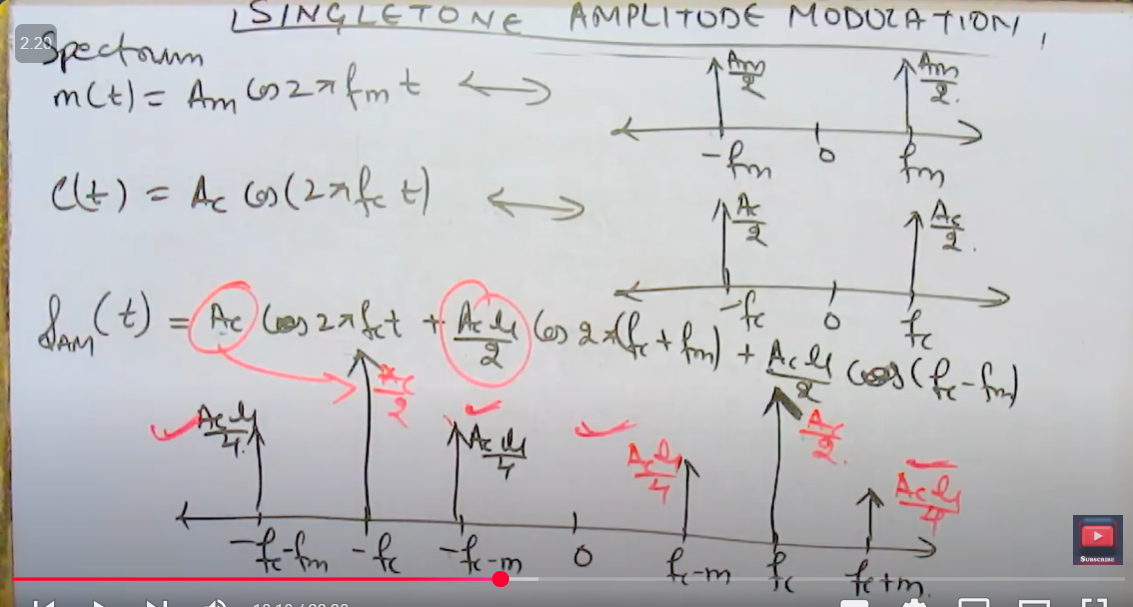 SINGLETONE AMPLITUDE MODULATION,
2.20
Spectrum
m(t) = Am Cos 2π fm t ⟷
Am/2 Am/2.
-fm 0 fm
C(t) = Ac Cos(2π fc t) ⟷
Ac/2 Ac/2.
-fc 0 fc
SAM(t) = Ac Cos 2π fc t + Ac μ/2 Cos 2π(fc + fm) + Ac μ/2 Cos(fc - fm)
Ac μ/4. Ac/2 Ac μ/4 Ac μ/4 Ac/2. Ac μ/4
-fc-fm -fc -fc-m 0 fc-m fc fc+m.
SUBSCRIBE